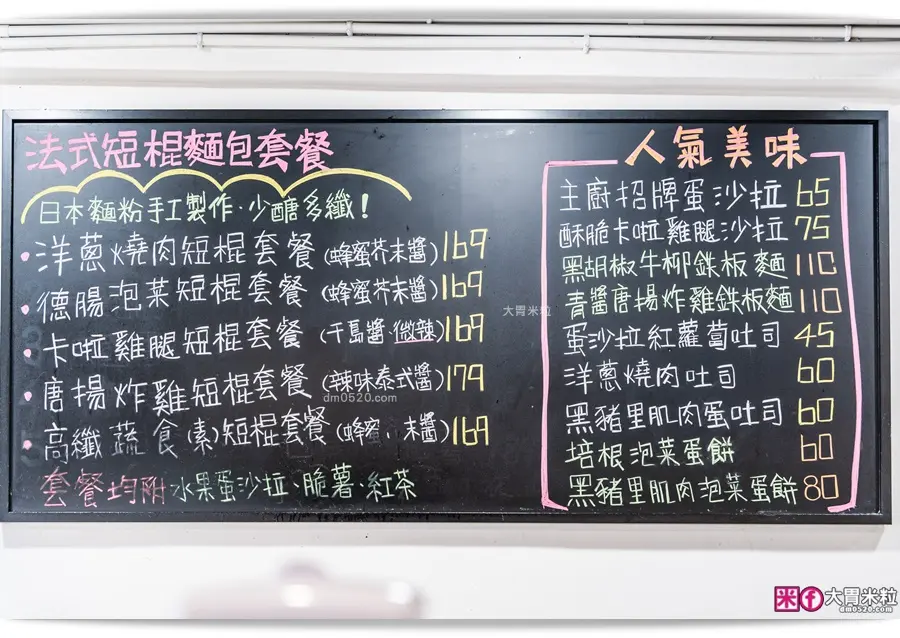 法式短棍麵包套餐
日本麵粉手工製作·少醣多纖!
洋蔥燒肉短棍套餐(蜂蜜芥末醬)169
德腸泡菜短棍套餐(蜂蜜芥末醬)169
卡啦雞腿短棍套餐(千島醬·微辣)169
唐揚炸雞短棍套餐(辣味泰式醬)179
高纖蔬食(素)短棍套餐(蜂蜜 末醬)169
套餐均附水果蛋沙拉·脆薯·紅茶
人氣美味
主廚招牌蛋沙拉 65
酥脆卡啦雞腿沙拉 75
黑胡椒牛柳鉄板麵 110
青醬唐揚炸雞鉄板麵 110
蛋沙拉紅蘿蔔吐司 45
洋蔥燒肉吐司 60
黑豬里肌肉蛋吐司 60
培根泡菜蛋餅 60
黑豬里肌肉泡菜蛋餅 80
大胃米粒
dm0520.com
米 f 大胃米粒
dm0520.com